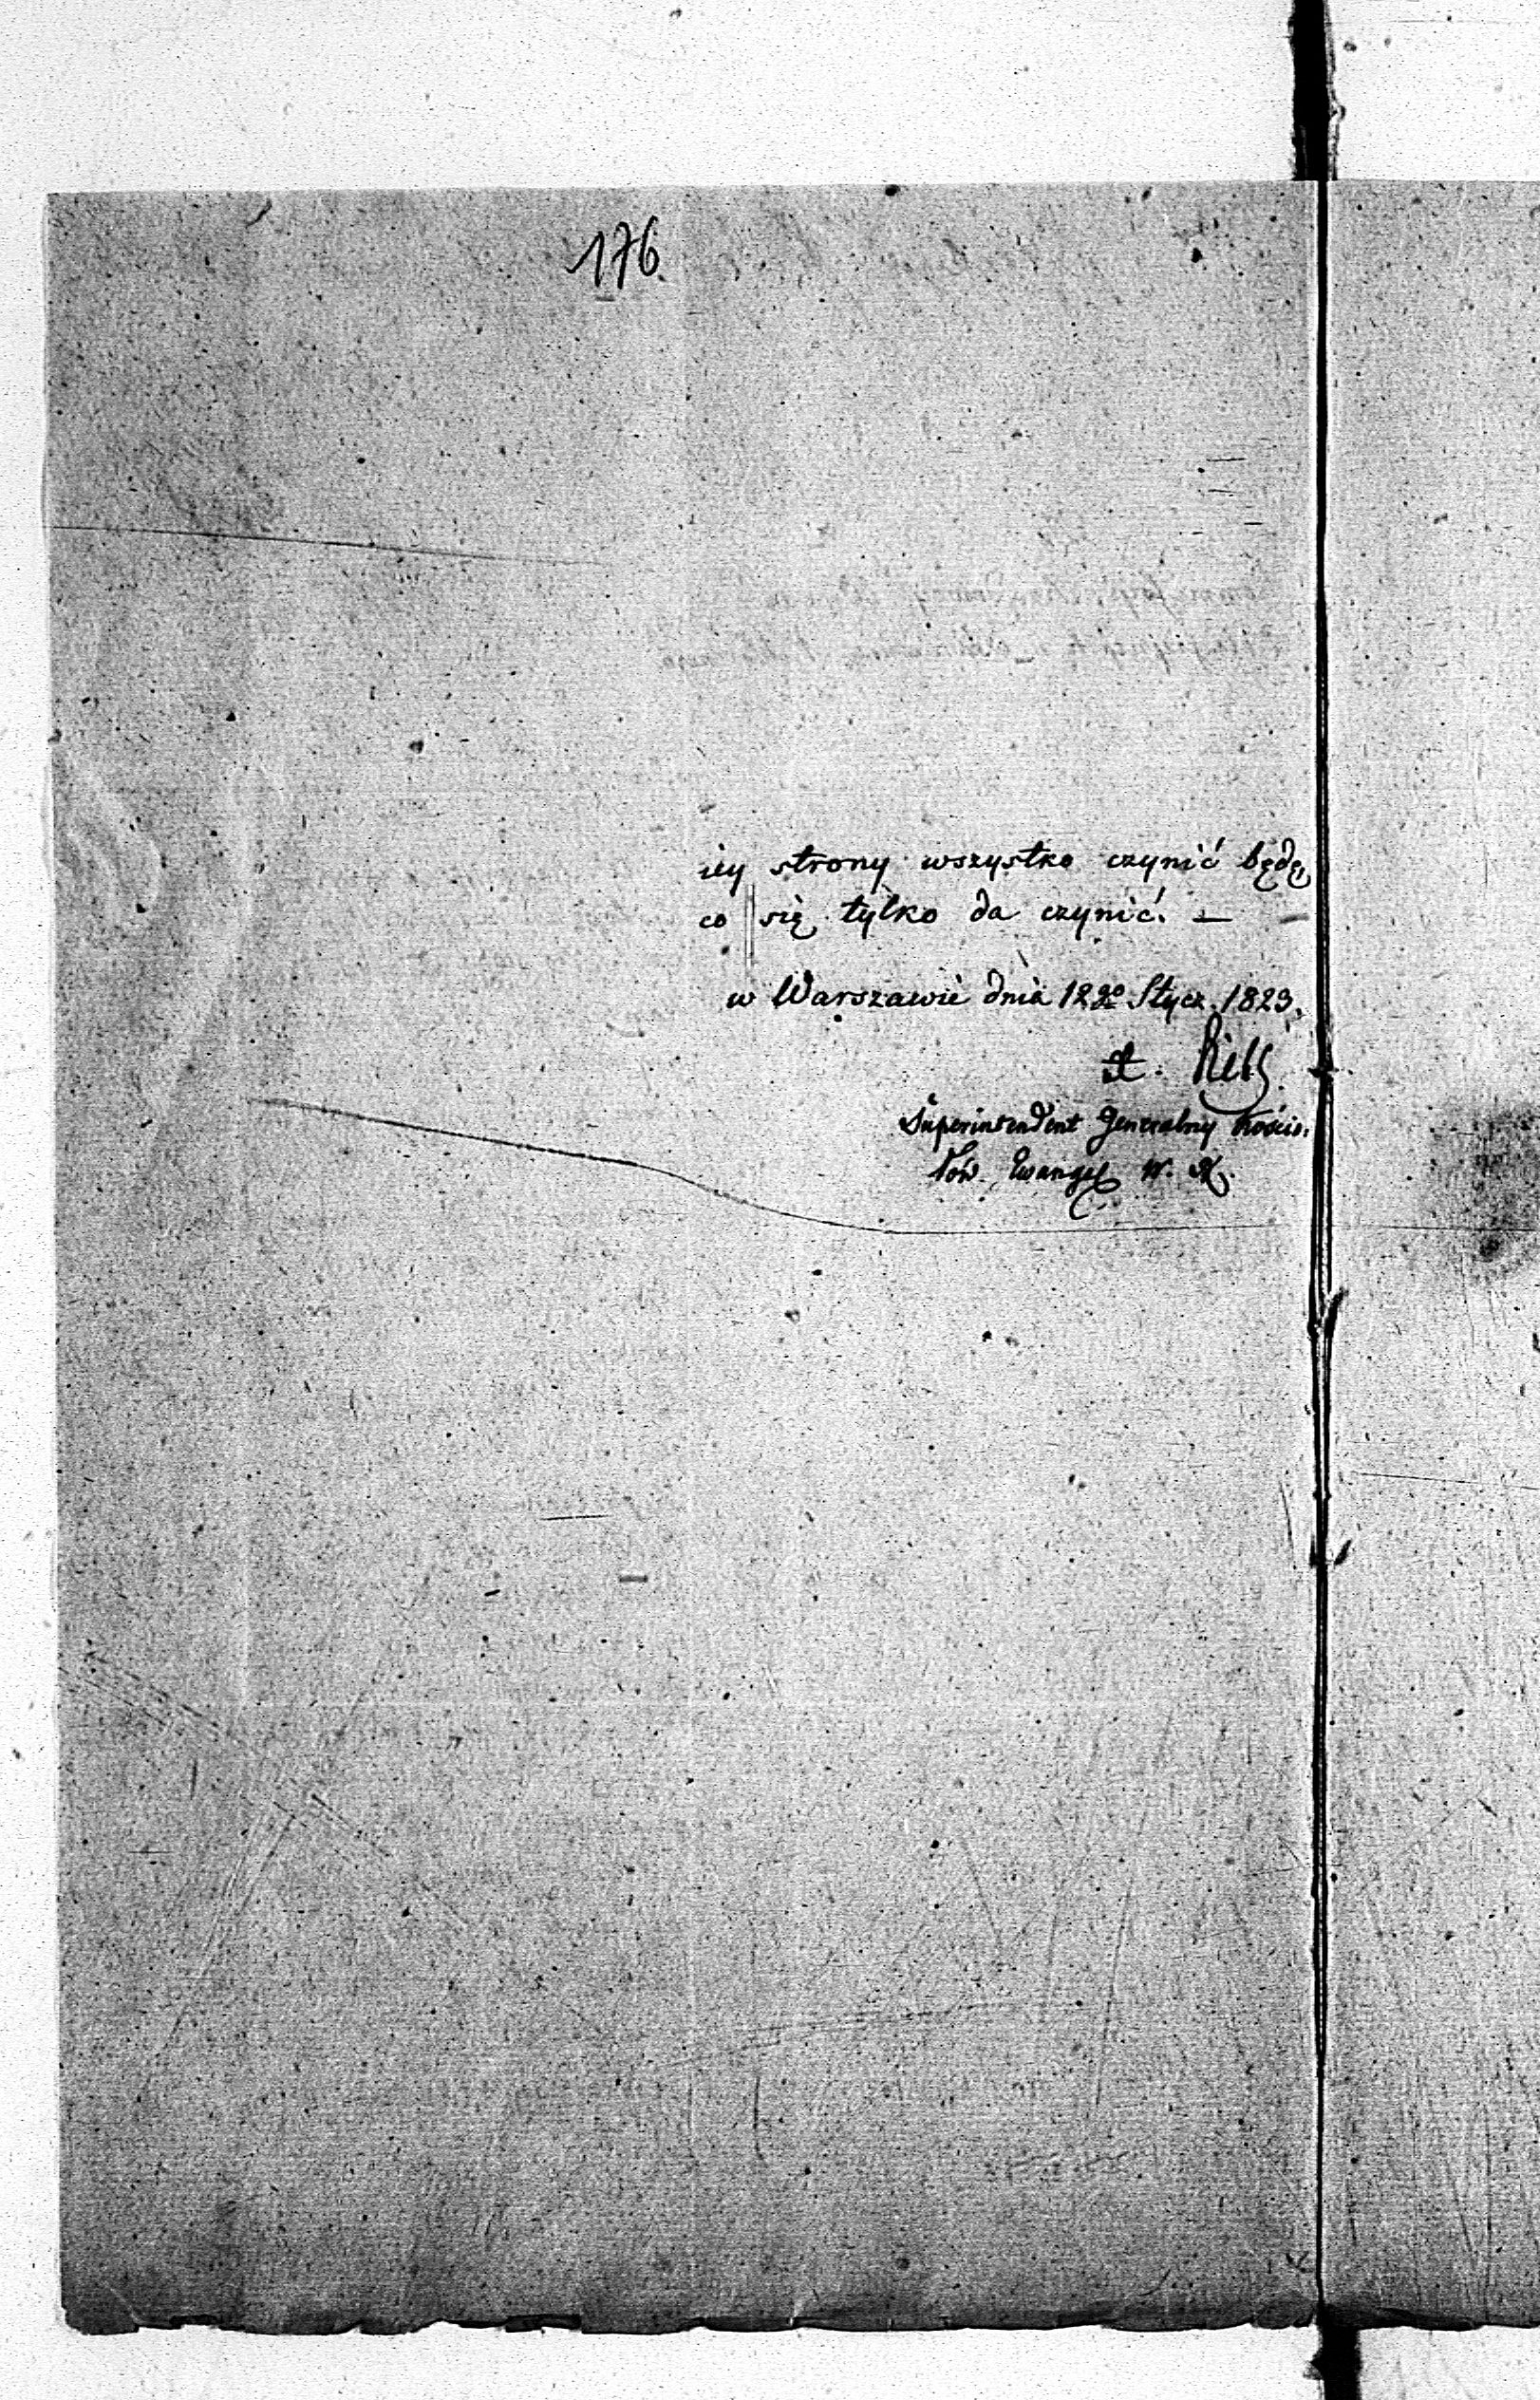 176.
iey strony wszystko czynić będę,
co się tylko da czynić. —
w Warszawie dnia 12go Stycz. 1823.
Superintendent Generalny Kościo-
łów. Ewangel W. A.